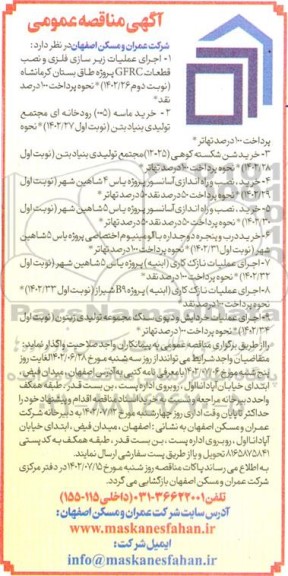 آگهی مناقصه عمومی
شرکت عمران و مسکن اصفهان در نظر دارد:
۱- اجرای عملیات زیر سازی فلزی و نصب
قطعات GFRC پروژه طاق بستان کرمانشاه
(نوبت دوم ۱۴۰۲/۲۶) * نحوه پرداخت ۱۰۰ درصد
نقد*
۲- خرید ماسه (۵-۰) رودخانه ای مجتمع
تولیدی بنیاد بتن (نوبت اول ۱۴۰۲/۲۷) * نحوه
پرداخت ۱۰۰ درصد تهاتر*
۳- خرید شن شکسته کوهی (۲۵-۱۲) مجتمع تولیدی بنیاد بتن (نوبت اول
۱۴۰۲/۲۸) * نحوه پرداخت ۱۰۰ درصد تهاتر*
۴- خرید، نصب و راه اندازی آسانسور پروژه یاس ۴ شاهین شهر (نوبت اول
۱۴۰۲/۲۹) * نحوه پرداخت ۵۰ درصد نقد ۵۰ درصد تهاتر*
۵- خرید، نصب و راه اندازی آسانسور پروژه یاس ۵ شاهین شهر (نوبت اول
۱۴۰۲/۳۰) * نحوه پرداخت ۵۰ درصد نقد ۵۰ درصد تهاتر*
۶- خرید درب و پنجره دو جداره با آلومینیوم اختصاصی پروژه یاس ۵ شاهین
شهر (نوبت اول ۱۴۰۲/۳۱) * نحوه پرداخت ۱۰۰ درصد تهاتر*
۷- اجرای عملیات نازک کاری (ابنیه) پروژه یاس ۵ شاهین شهر (نوبت اول
۱۴۰۲/۳۲) * نحوه پرداخت ۱۰۰ درصد نقد*
۸- اجرای عملیات نازک کاری (ابنیه) پروژه B۹ شیراز (نوبت اول ۱۴۰۲/۳۳) *
نحوه پرداخت ۱۰۰ درصد نقد*
۹- اجرای عملیات خردایش و دپوی سنگ مجموعه تولیدی زیتون (نوبت اول
۱۴۰۲/۳۴) * نحوه پرداخت ۱۰۰ درصد تهاتر*
را از طریق برگزاری مناقصه عمومی به پیمانکاران واجد صلاحیت واگذار نماید:
متقاضیان واجد شرایط می توانند از روز سه شنبه مورخ ۱۴۰۲/۶/۲۸ لغایت روز
پنج شنبه مورخ ۱۴۰۲/۰۷/۰۶ با معرفی نامه کتبی به آدرس اصفهان، میدان فیض،
ابتدای خیابان آپادانا اول، روبروی اداره پست، بن بست قدر، طبقه همکف
واحد دبیرخانه مراجعه و نسبت به دریافت اسناد مناقصه اقدام و پیشنهاد خود را
حداکثر تا پایان وقت اداری روز چهارشنبه مورخ ۱۴۰۲/۰۷/۱۲ به دبیرخانه شرکت
عمران و مسکن اصفهان به نشانی: اصفهان، میدان فیض، ابتدای خیابان
آپادانا اول، روبروی اداره پست، بن بست قدر، طبقه همکف به کد پستی
۸۱۶۵۸۷۵۸۴۱ تحویل و یا از طریق پست سفارشی ارسال نمایند.
به اطلاع می رساند پاکات مناقصه روز شنبه مورخ ۱۴۰۲/۰۷/۱۵ در دفتر مرکزی
شرکت عمران و مسکن اصفهان بازگشایی می گردد.
تلفن: ۳۶۶۲۲۰۰۱-۰۳۱ (داخلی ۱۱۵-۱۵۵)
آدرس سایت شرکت عمران و مسکن اصفهان:
www.maskanesfahan.ir
ایمیل شرکت:
info@maskanesfahan.ir